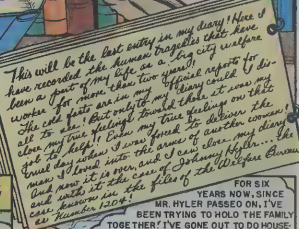 This will be the last entry in my diary! Here I
have recorded the human tragedies that have
been a part of my life as a big city welfare
worker for more than two years!
The cold facts are in my official reports for
all to see! But only to my diary could I dis-
close my true feelings toward those it was my
job to help! Even my true feelings on that
cruel day when I was forced to deliver the
man I loved into the arms of another woman!
And now it is over, and I can close my diary
and with it the case of Johnny Hyler... the
case known in the files of the Welfare Bureau
as Number 1204!
FOR SIX
YEARS NOW, SINCE
MR. HYLER PASSED ON, I'VE
BEEN TRYING TO HOLD THE FAMILY
TOGETHER! I'VE GONE OUT TO DO HOUSE-